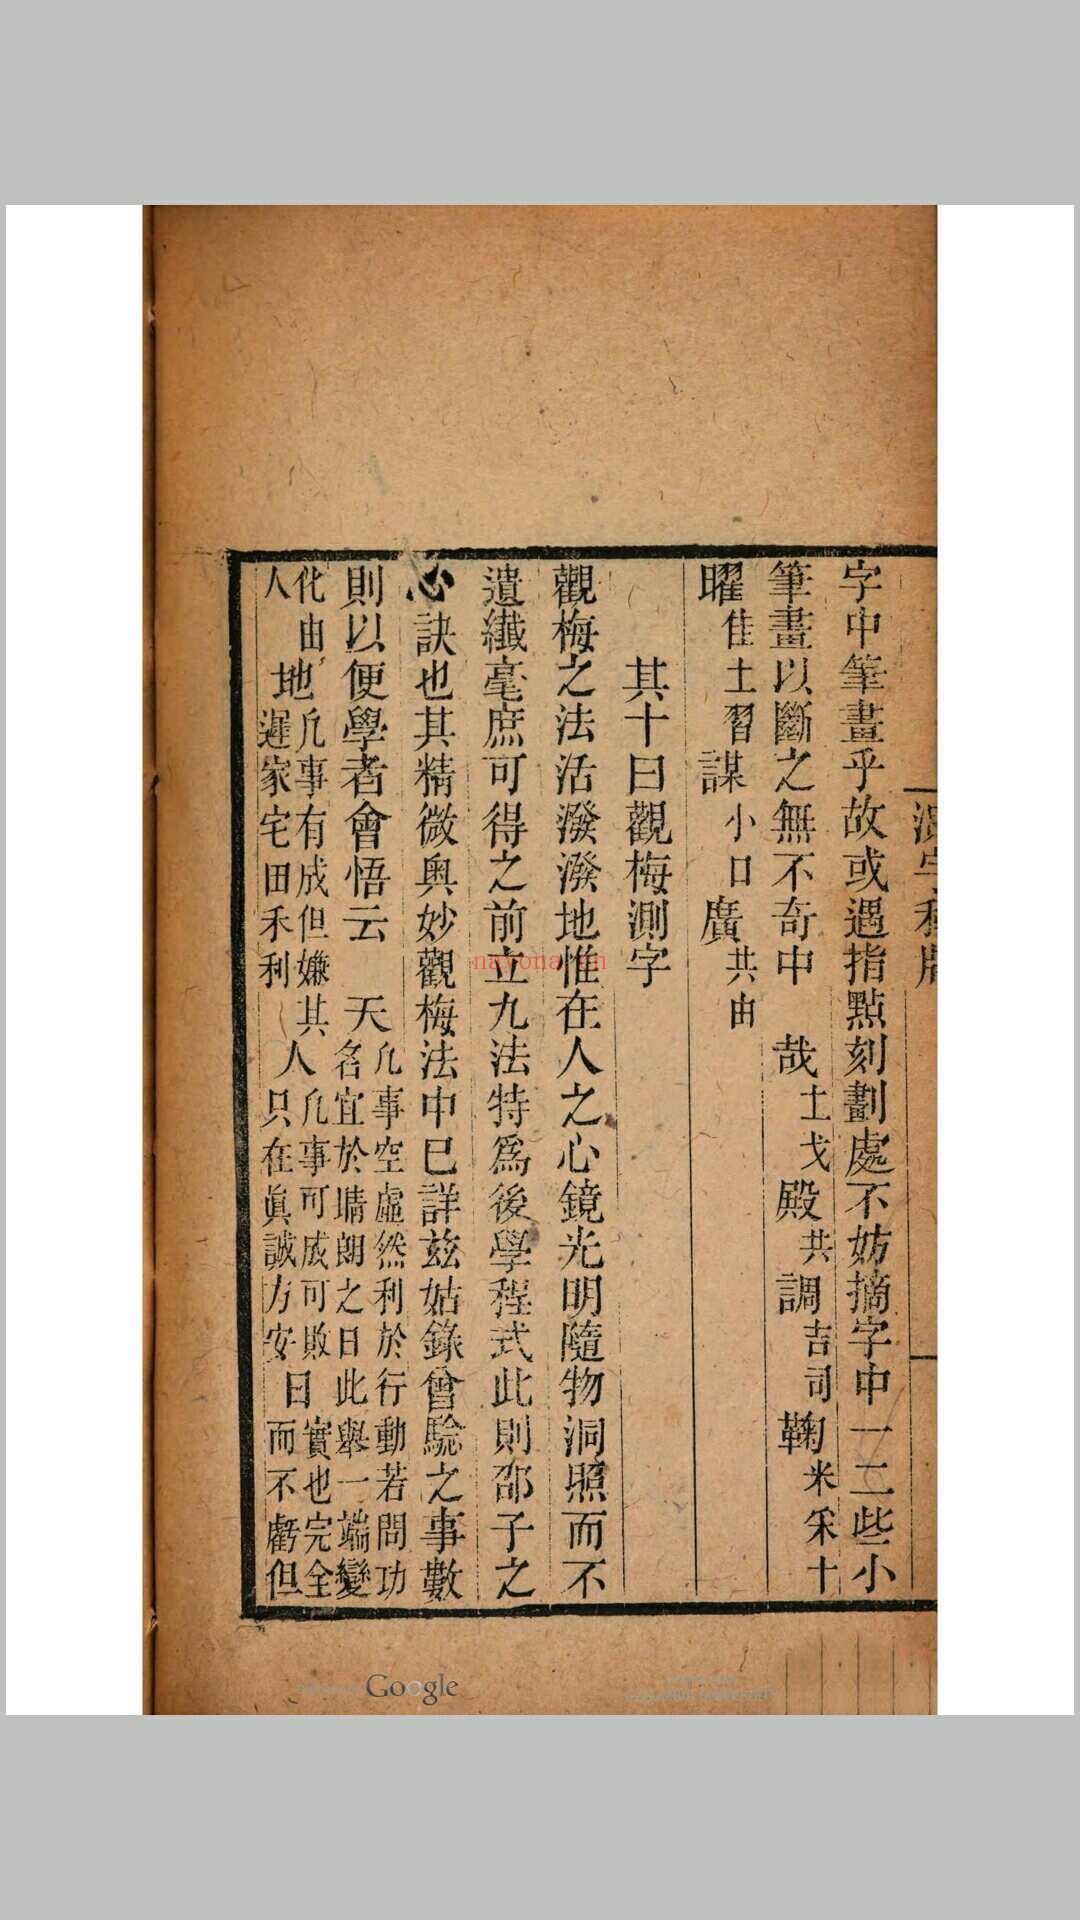 字中筆畫乎故或遇指點刻劃處不妨摘字中一二些小
筆畫以斷之無不奇中　哉土戈殿共調吉司鞠米米十
曜隹土習謀小口廣共由
其十曰觀梅測字
觀梅之法活潑潑地惟在人之心鏡光明隨物洞照而不
遺纖毫庶可得之前立九法特爲後學程式此則邵子之
心訣也其精微奧妙觀梅法中巳詳兹姑錄曾驗之事數
則以便學者會悟云　天
凡事空虛然利於行動若問功
名宜於晴朗之日此舉一端變
化由人
地
凡事有成但嫌其
遲家宅田禾利
人
凡事可成可敗
只在眞誠方安
日
實也完全
而不虧但
nayona.cn
Google